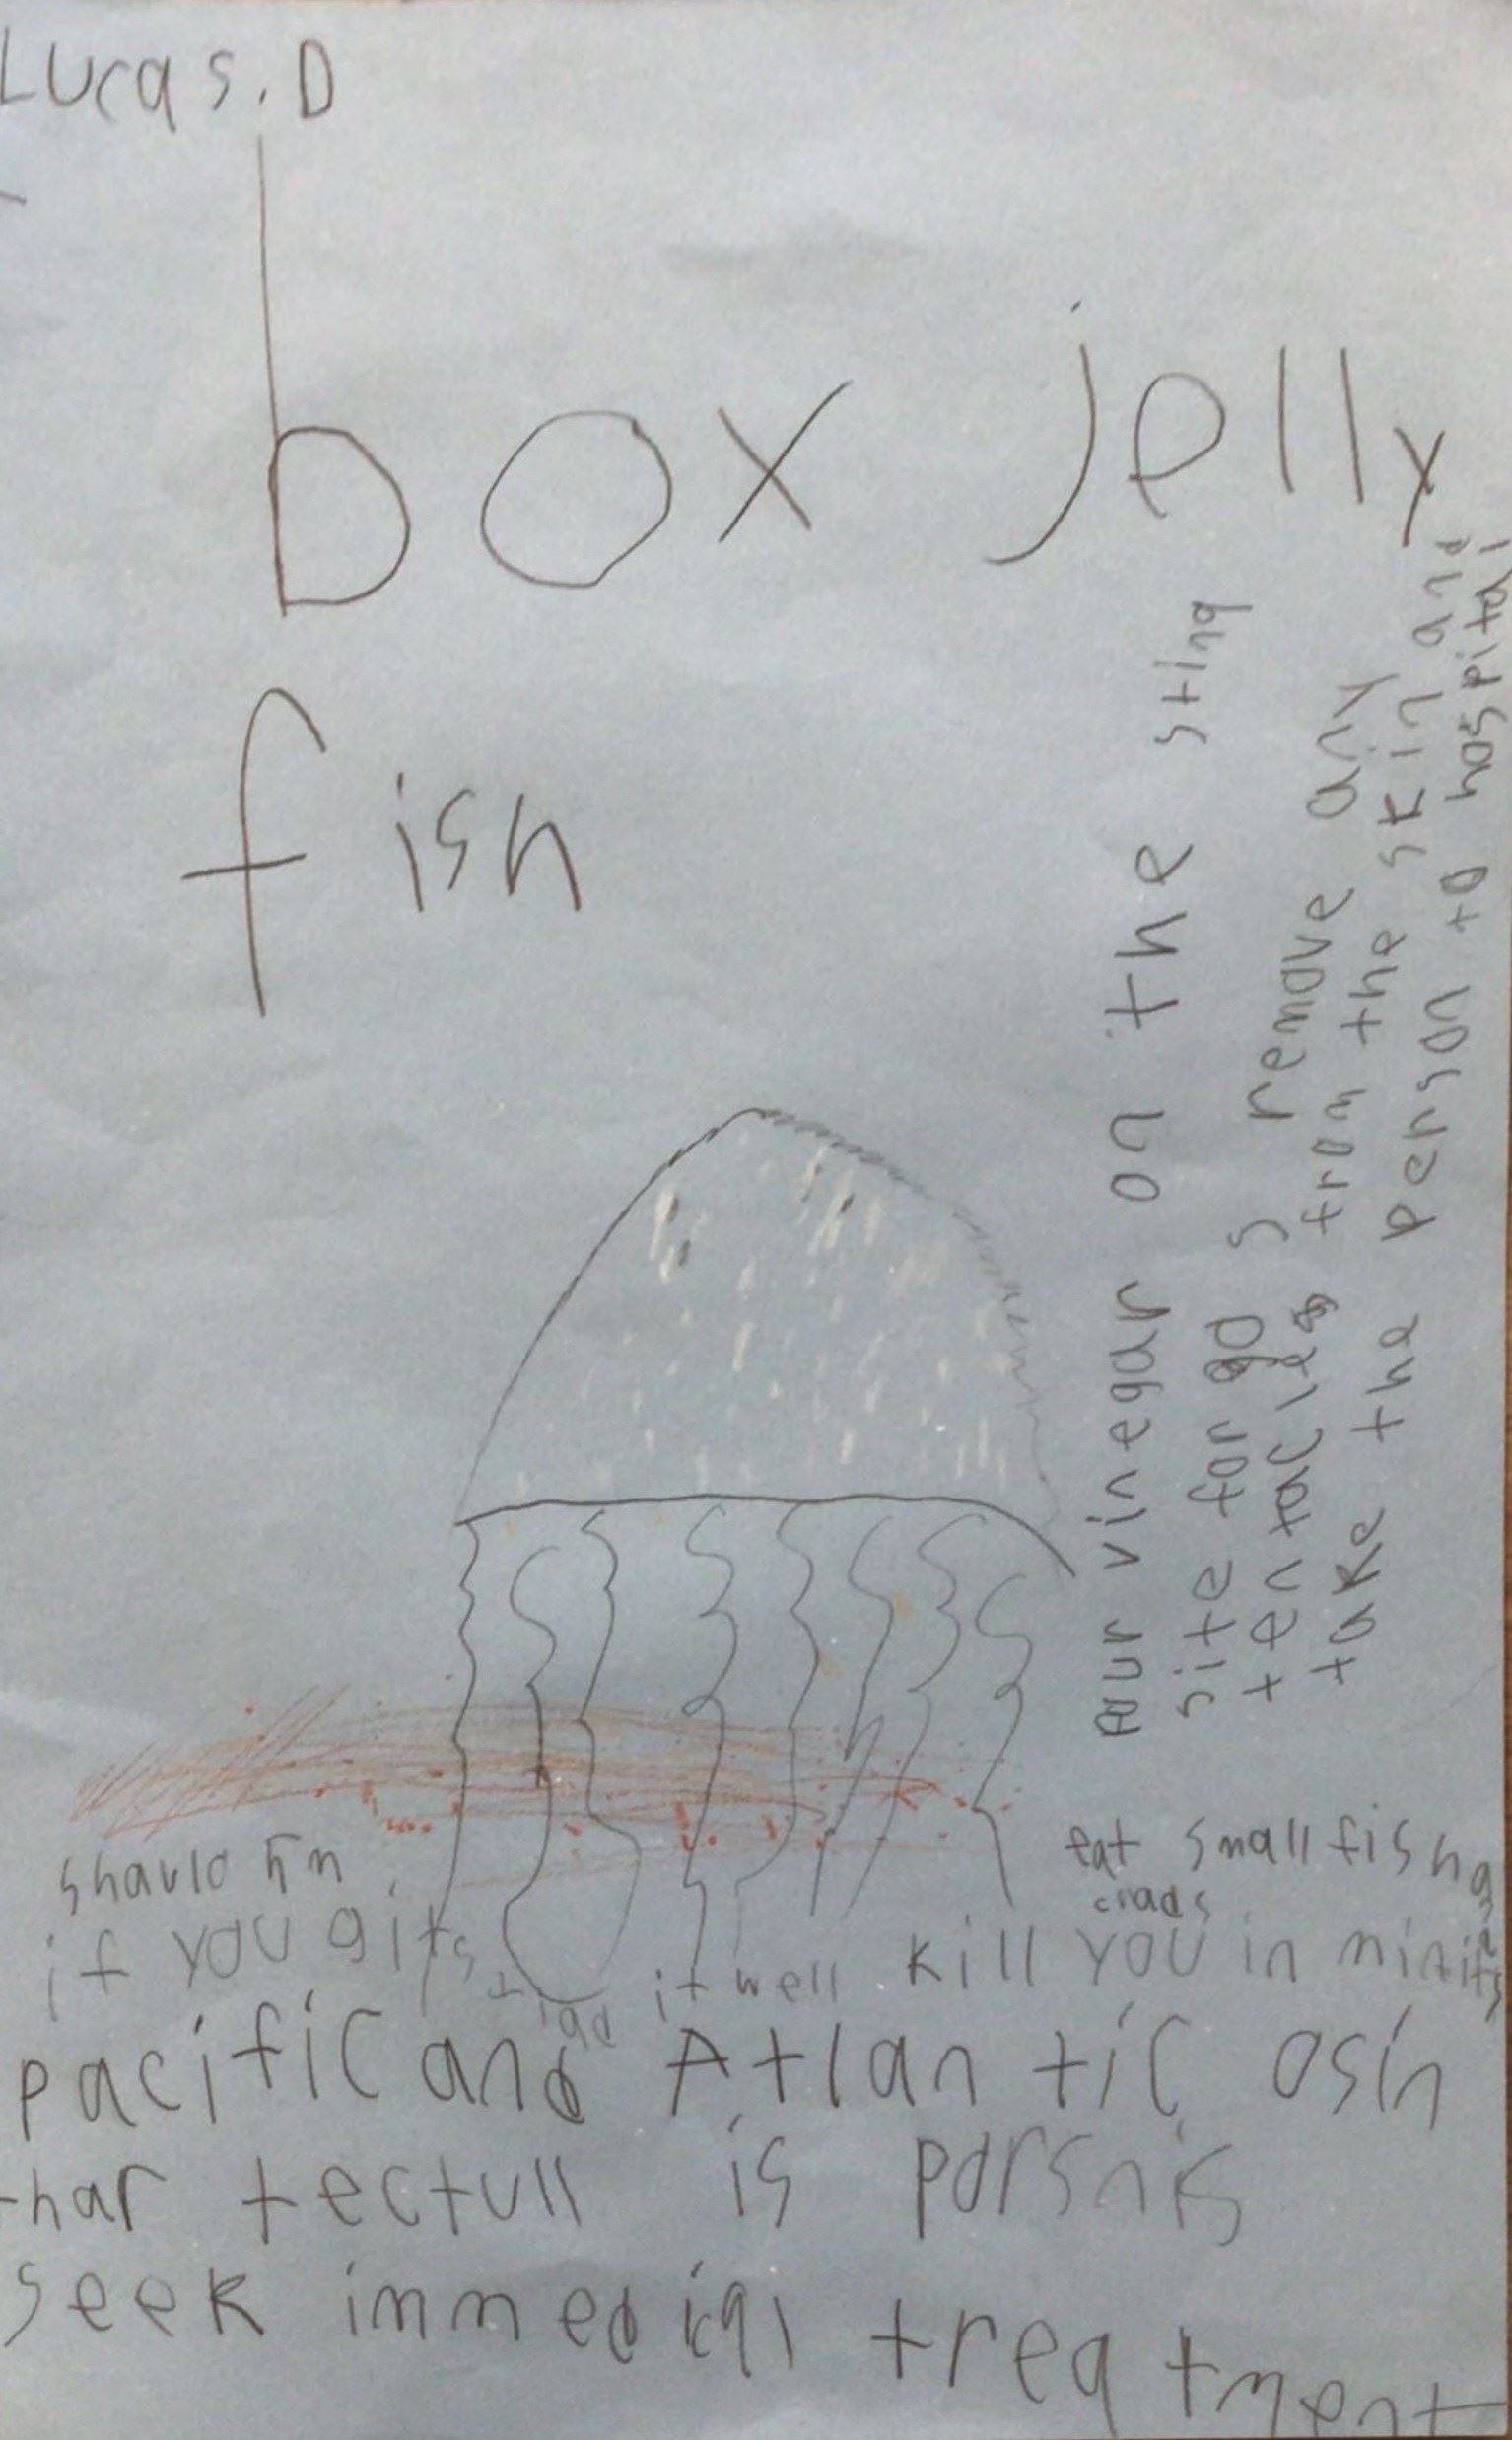 Lucas.D
box jelly
fish
Pour vinegar on the sting
site for 30 s remove any
tentacles from the skin and
take the person to hospital
eat small fish and
crads
should
if you git stiad it well kill you in minites
pacific and Atlantic osin
thar tectull is porsnis
seek immedial treatment